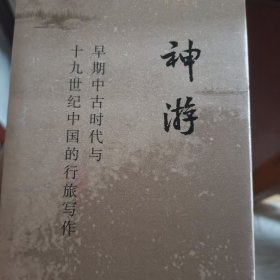 神游
早期中古时代与
十九世纪中国的行旅写作